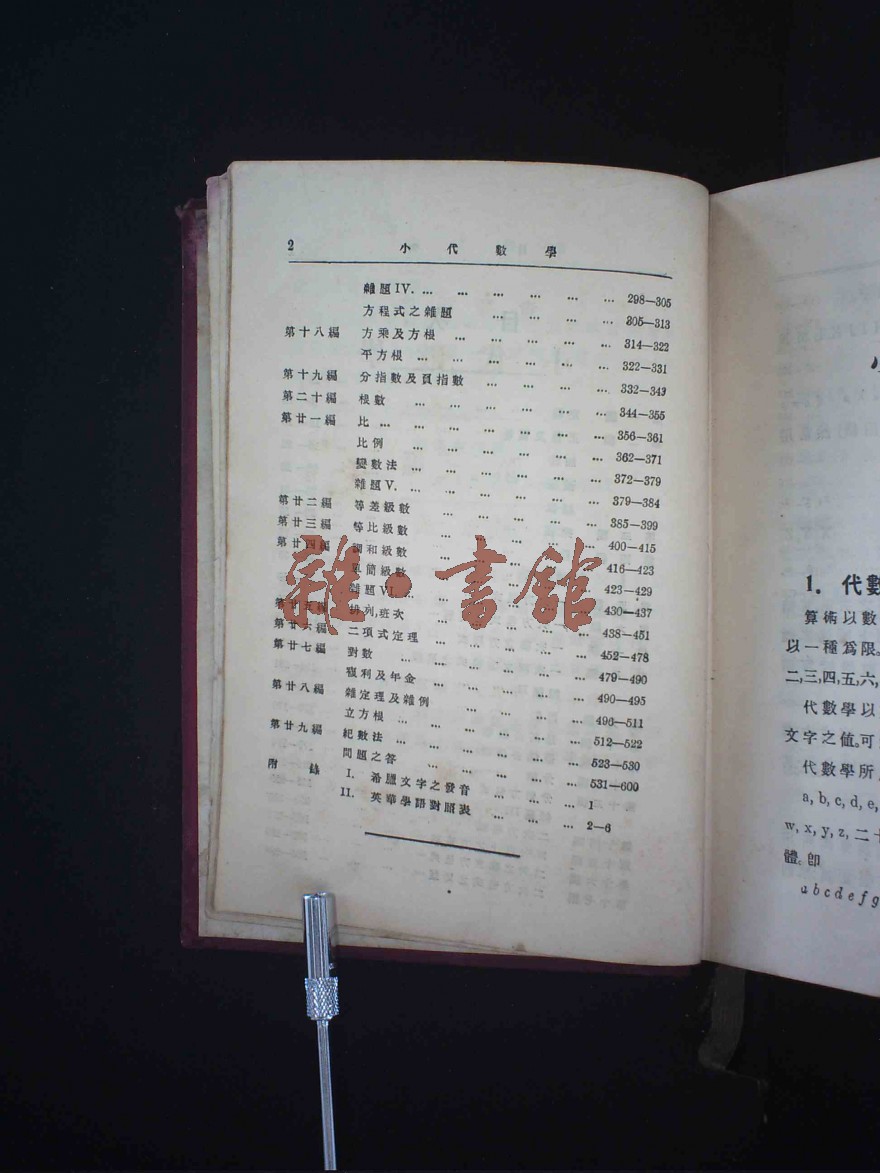 2 小代數學
雜題 IV. ... ... ... ... ... ... 298—305
方程式之雜題 ... ... ... ... 305—313
第十八編 方乘及方根 ... ... ... ... ... 314—322
平方根 ... ... ... ... ... ... 322—331
第十九編 分指數及負指數 ... ... ... ... 332—343
第二十編 根數 ... ... ... ... ... ... 344—355
第廿一編 比 ... ... ... ... ... ... ... 356—361
比例 ... ... ... ... ... ... 362—371
變數法 ... ... ... ... ... ... 372—379
雜題 V. ... ... ... ... ... ... 379—384
第廿二編 等差級數 ... ... ... ... ... 385—399
第廿三編 等比級數 ... ... ... ... ... 400—415
第廿四編 調和級數 ... ... ... ... ... 416—423
單簡級數 ... ... 423—429
雜題 VI. ... ... 430—437
第廿五編 排列,班次 ... ... ... 438—451
第廿六編 二項式定理 ... ... ... ... ... 452—478
第廿七編 對數 ... ... ... ... ... ... 479—490
複利及年金 ... ... ... ... ... 490—495
第廿八編 雜定理及雜例 ... ... ... ... 496—511
立方根 ... ... ... ... ... ... 512—522
第廿九編 紀數法 ... ... ... ... ... ... 523—530
問題之答 ... ... ... ... ... 531—600
附錄 I. 希臘文字之發音 ... ... ... 1
II. 英華學語對照表 ... ... ... 2—6
雜·書館
1. 代數
算術以數
以一種爲限。
二,三,四,五,六,
代數學以
文字之值。可
代數學所
a, b, c, d, e,
w, x, y, z, 二十
體。卽
a b c d e f g